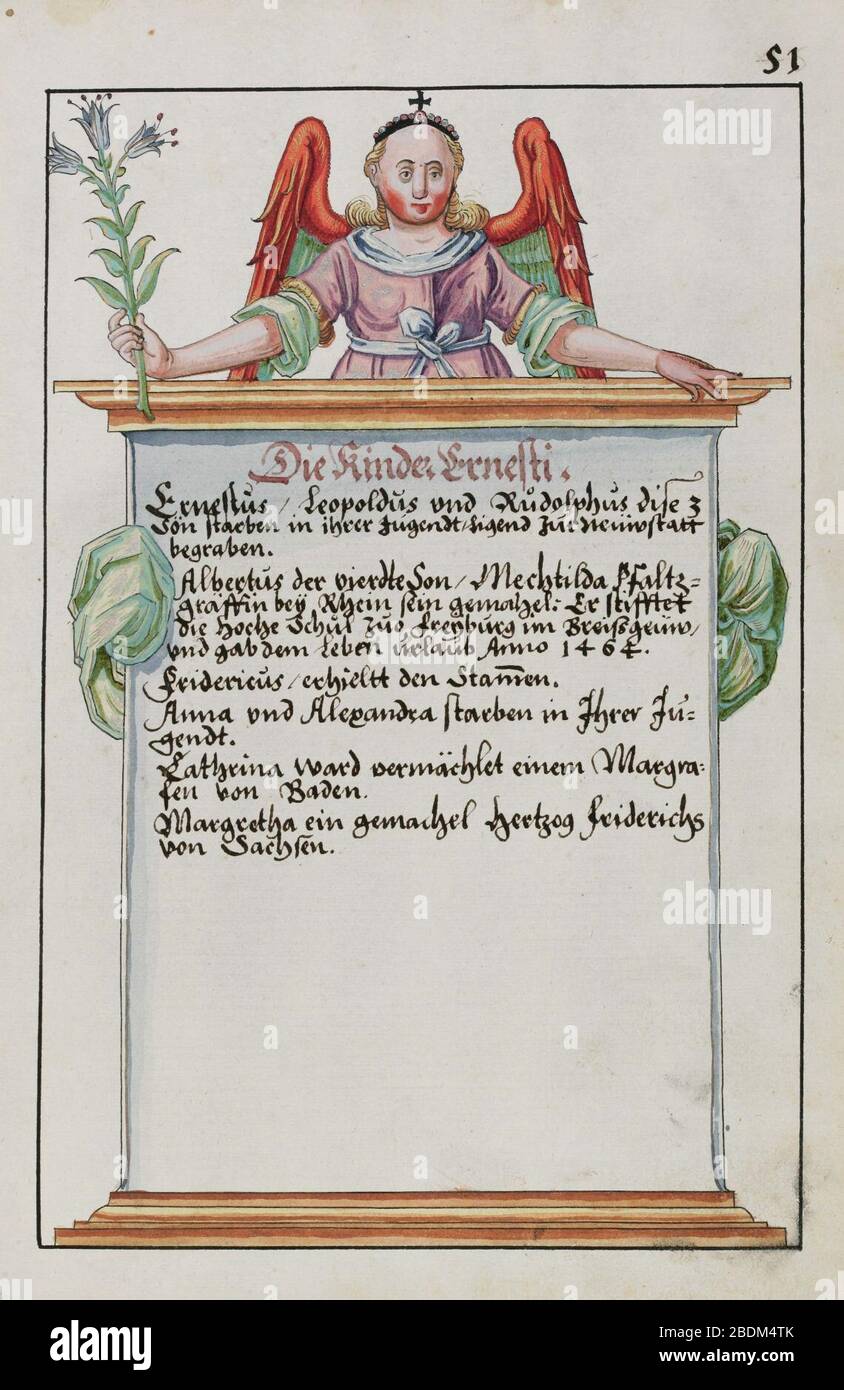 51
Die Kinder Ernesti.
Ernestus / Leopoldus vnd Růdolphus dise 3
Sön starben in ihrer Jugendt / ligend zur Neüwstatt
begraben.
Albertus der vierdte Son / Mechtilda Pfaltz=
gräffin beÿ Rhein sein gemahel: Er stifftet
die Hoche Schul zuo Freyburg im Breißgeüw /
vnd gab dem Leben urlaub Anno 1464.
Fridericus / erhieltt den Stam̄en.
Anna vnd Alexandra starben in Ihrer Ju=
gendt.
Cathrina ward vermächlet einem Margra=
fen von Baden.
Margretha ein gemachel Hertzog Friderichs
von Sachsen.
alamy
alamy
Image ID: 2BDM4TK
www.alamy.com